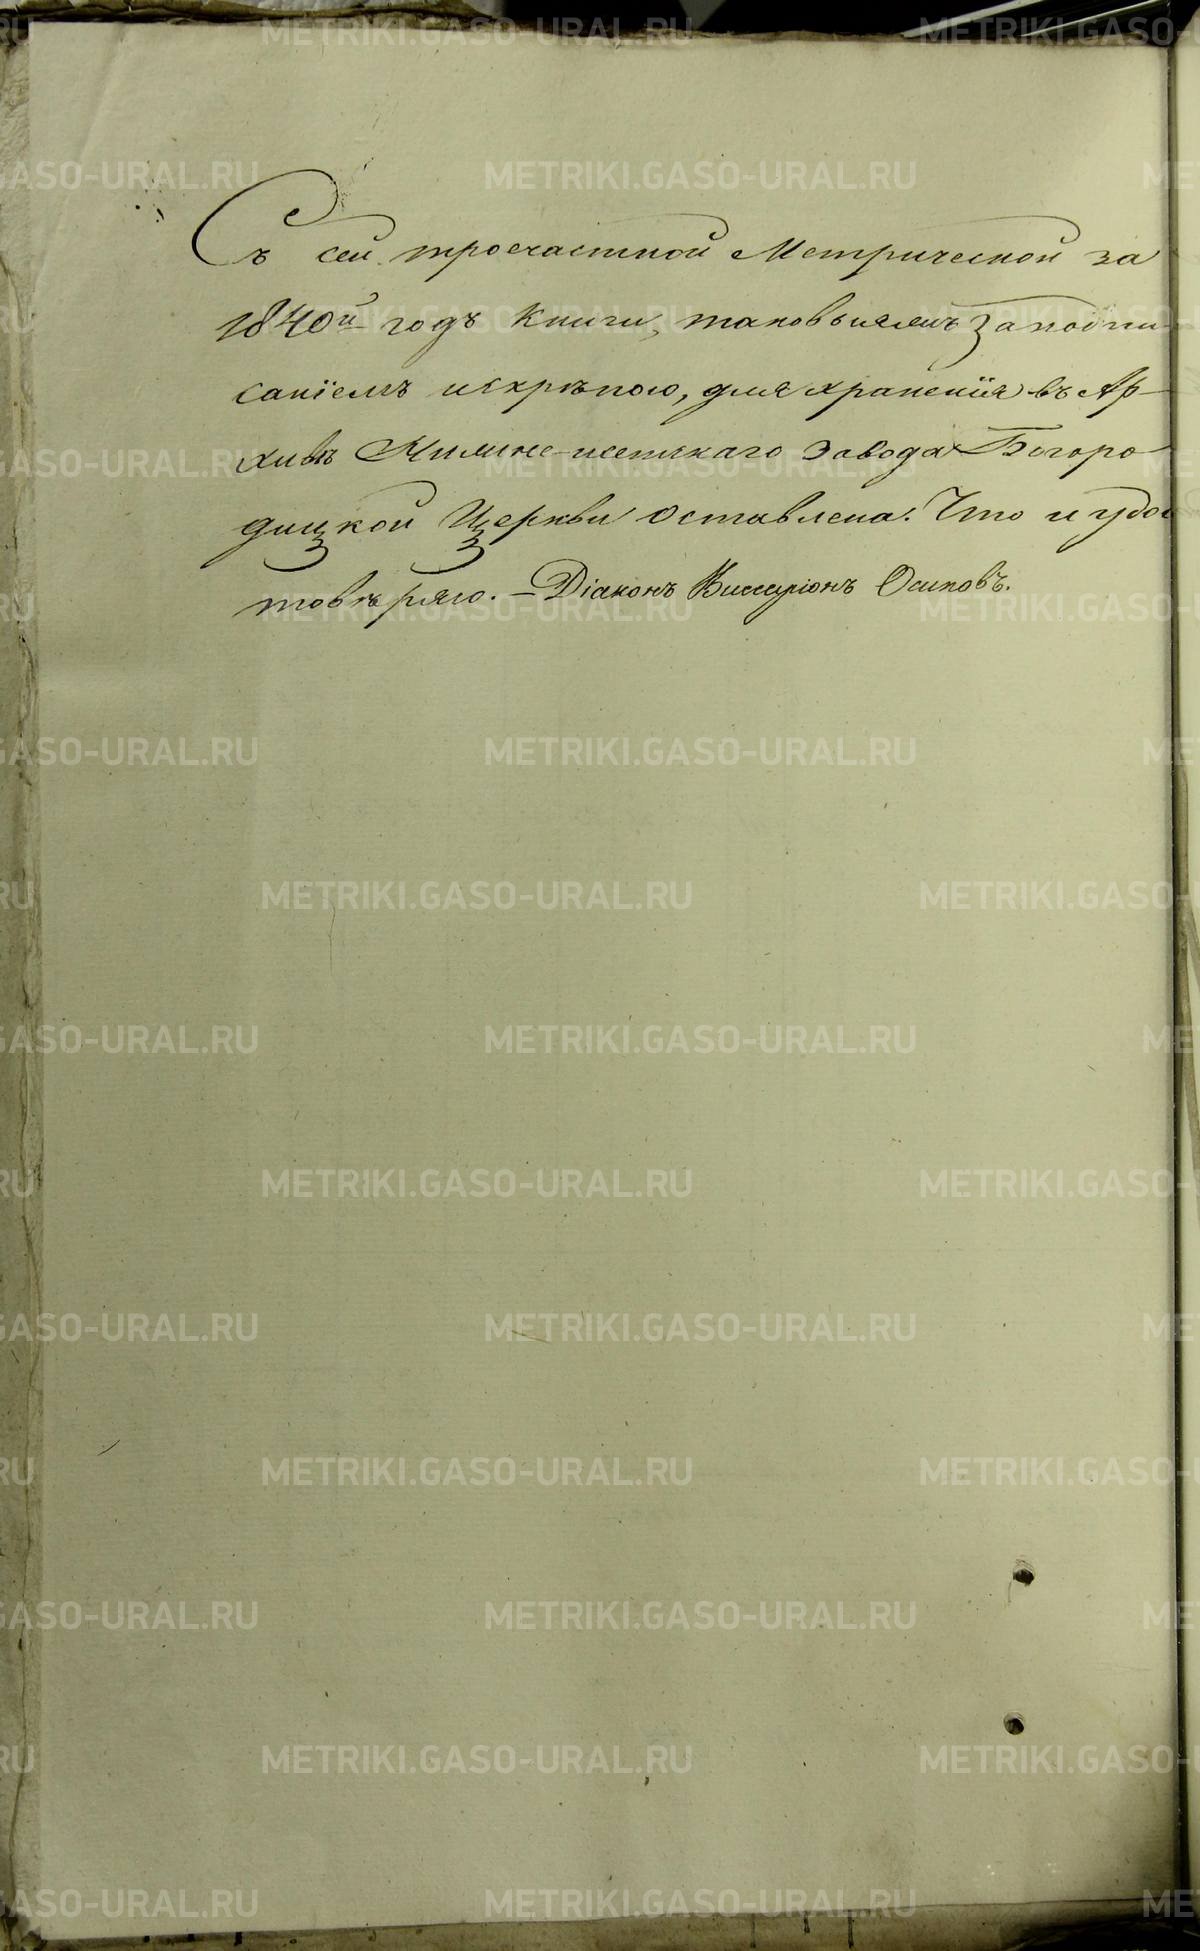 Съ сей троечастной Метрической за
1840й годъ Книги, таковыяжъ заподпи
саніемъ искрѣпою, для храненія въ Ар-
хивѣ Нижне-исетскаго Завода Богоро
дицкой Церкви оставлена. Что и удос
товѣряю. – Діаконъ Виссаріонъ Осиповъ.
METRIKI.GASO-URAL.RU